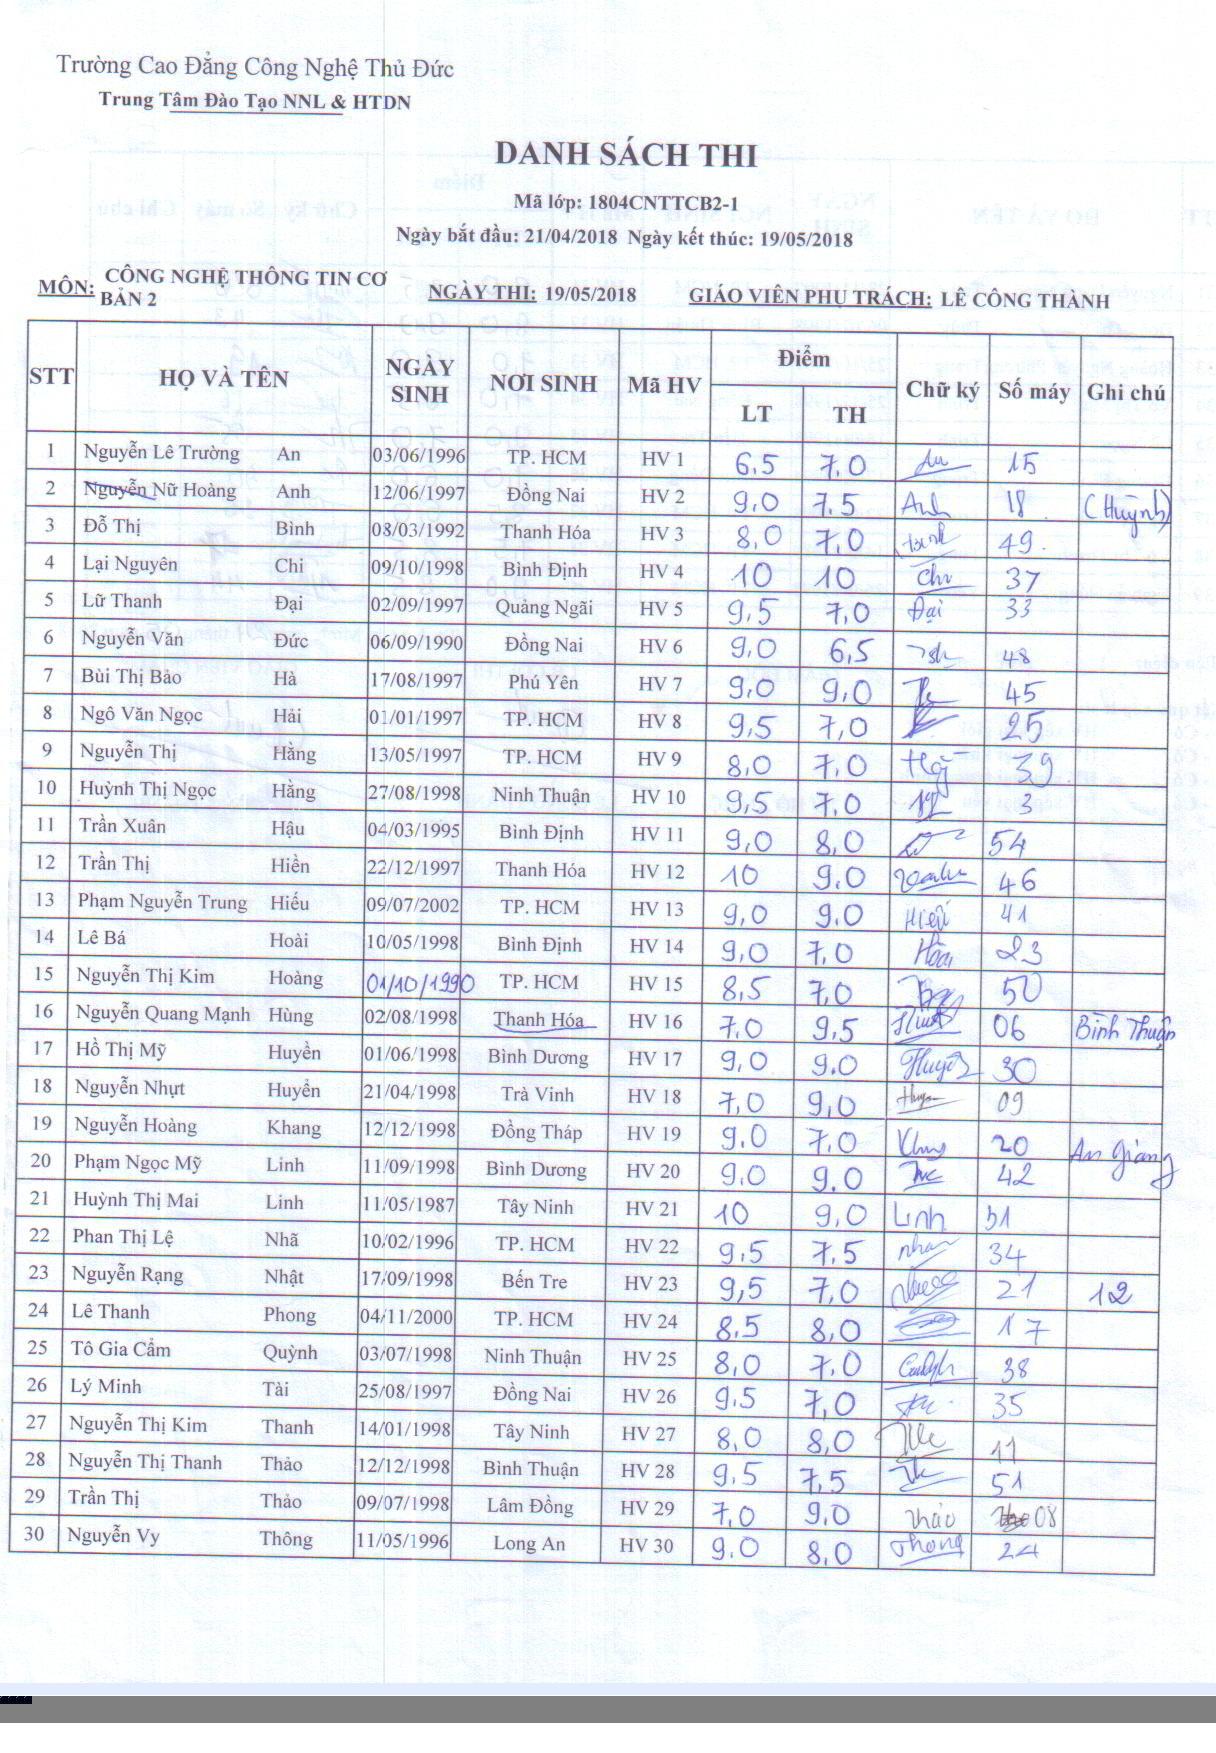 Trường Cao Đẳng Công Nghệ Thủ Đức
Trung Tâm Đào Tạo NNL & HTDN
DANH SÁCH THI
Mã lớp: 1804CNTTCB2-1
Ngày bắt đầu: 21/04/2018 Ngày kết thúc: 19/05/2018
MÔN: CÔNG NGHỆ THÔNG TIN CƠ BẢN 2 NGÀY THI: 19/05/2018 GIÁO VIÊN PHỤ TRÁCH: LÊ CÔNG THÀNH
STT HỌ VÀ TÊN NGÀY SINH NƠI SINH Mã HV Điểm Chữ ký Số máy Ghi chú
LT TH
1 Nguyễn Lê Trường An 03/06/1996 TP. HCM HV 1 6,5 7,0 15
2 Nguyễn Nữ Hoàng Anh 12/06/1997 Đồng Nai HV 2 9,0 7.5 Anh 18 (Huỳnh)
3 Đỗ Thị Bình 08/03/1992 Thanh Hóa HV 3 8,0 7,0 49
4 Lại Nguyên Chi 09/10/1998 Bình Định HV 4 10 10 Chi 37
5 Lữ Thanh Đại 02/09/1997 Quảng Ngãi HV 5 9,5 7,0 Đại 33
6 Nguyễn Văn Đức 06/09/1990 Đồng Nai HV 6 9,0 6,5 48
7 Bùi Thị Bảo Hà 17/08/1997 Phú Yên HV 7 9,0 9,0 45
8 Ngô Văn Ngọc Hải 01/01/1997 TP. HCM HV 8 9,5 7,0 25
9 Nguyễn Thị Hằng 13/05/1997 TP. HCM HV 9 8,0 7,0 39
10 Huỳnh Thị Ngọc Hằng 27/08/1998 Ninh Thuận HV 10 9,5 7,0 3
11 Trần Xuân Hậu 04/03/1995 Bình Định HV 11 9,0 8,0 54
12 Trần Thị Hiền 22/12/1997 Thanh Hóa HV 12 10 9.0 46
13 Phạm Nguyễn Trung Hiếu 09/07/2002 TP. HCM HV 13 9,0 9.0 41
14 Lê Bá Hoài 10/05/1998 Bình Định HV 14 9,0 7,0 Hoài 23
15 Nguyễn Thị Kim Hoàng 01/10/1990 TP. HCM HV 15 8,5 7,0 50
16 Nguyễn Quang Mạnh Hùng 02/08/1998 Thanh Hóa HV 16 7.0 9,5 06 Bình Thuận
17 Hồ Thị Mỹ Huyền 01/06/1998 Bình Dương HV 17 9,0 9.0 30
18 Nguyễn Nhựt Huyển 21/04/1998 Trà Vinh HV 18 7,0 9,0 09
19 Nguyễn Hoàng Khang 12/12/1998 Đồng Tháp HV 19 9.0 7,0 20 An Giang
20 Phạm Ngọc Mỹ Linh 11/09/1998 Bình Dương HV 20 9,0 9.0 42
21 Huỳnh Thị Mai Linh 11/05/1987 Tây Ninh HV 21 10 9,0 Linh 31
22 Phan Thị Lệ Nhã 10/02/1996 TP. HCM HV 22 9.5 7,5 34
23 Nguyễn Rạng Nhật 17/09/1998 Bến Tre HV 23 9,5 7,0 21 12
24 Lê Thanh Phong 04/11/2000 TP. HCM HV 24 8.5 8,0 17
25 Tô Gia Cẩm Quỳnh 03/07/1998 Ninh Thuận HV 25 8,0 7,0 38
26 Lý Minh Tài 25/08/1997 Đồng Nai HV 26 9.5 7,0 35
27 Nguyễn Thị Kim Thanh 14/01/1998 Tây Ninh HV 27 8,0 8,0 11
28 Nguyễn Thị Thanh Thảo 12/12/1998 Bình Thuận HV 28 9,5 7,5 51
29 Trần Thị Thảo 09/07/1998 Lâm Đồng HV 29 7,0 9,0 Thảo 08
30 Nguyễn Vy Thông 11/05/1996 Long An HV 30 9,0 8,0 Thong 24